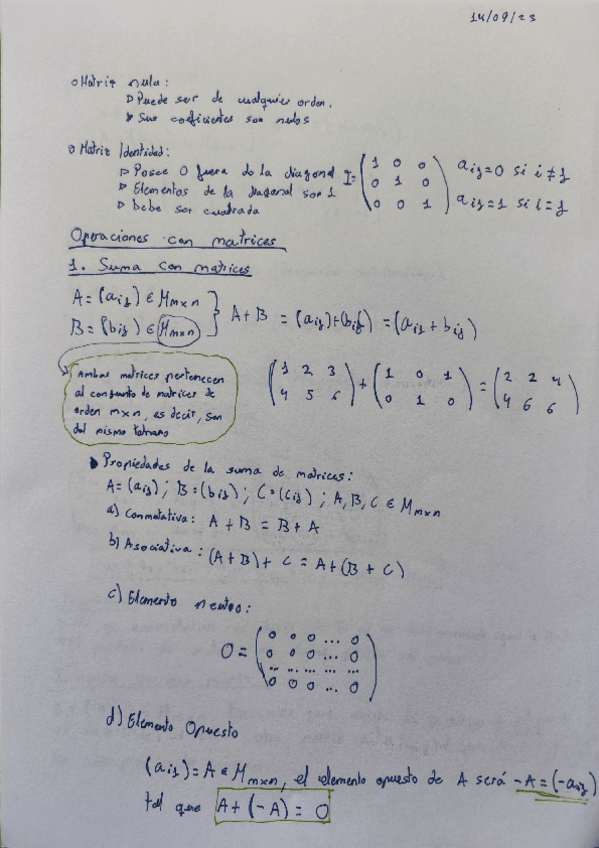 14/09/23
○ Matriz nula:
▷ Puede ser de cualquier orden.
▷ Sus coeficientes son nulos
○ Matriz Identidad:
▷ Posee 0 fuera de la diagonal
▷ Elementos de la diagonal son 1
▷ Debe ser cuadrada
I = ( 1 0 0
0 1 0
0 0 1 )
aij=0 si i ≠ j
aij=1 si i = j
Operaciones con matrices
1. Suma con matrices
A = (aij) ∈ Mmxn
B = (bij) ∈ Mmxn
} A + B = (aij)+(bij) = (aij + bij)
Ambas matrices pertenecen
al conjunto de matrices de
orden mxn, es decir, son
del mismo tamaño
( 1 2 3 ) + ( 1 0 1 ) = ( 2 2 4 )
( 4 5 6 ) ( 0 1 0 ) ( 4 6 6 )
Propiedades de la suma de matrices:
A = (aij) ; B = (bij) ; C = (cij) ; A, B, C ∈ Mmxn
a) Conmutativa: A + B = B + A
b) Asociativa: (A + B) + C = A + (B + C)
c) Elemento neutro:
O = ( 0 0 0 ... 0
0 0 0 ... 0
... ... ... ... ...
0 0 0 ... 0 )
d) Elemento Opuesto
(aij) = A ∈ Mmxn, el elemento opuesto de A será -A = (-aij)
tal que A + (-A) = 0